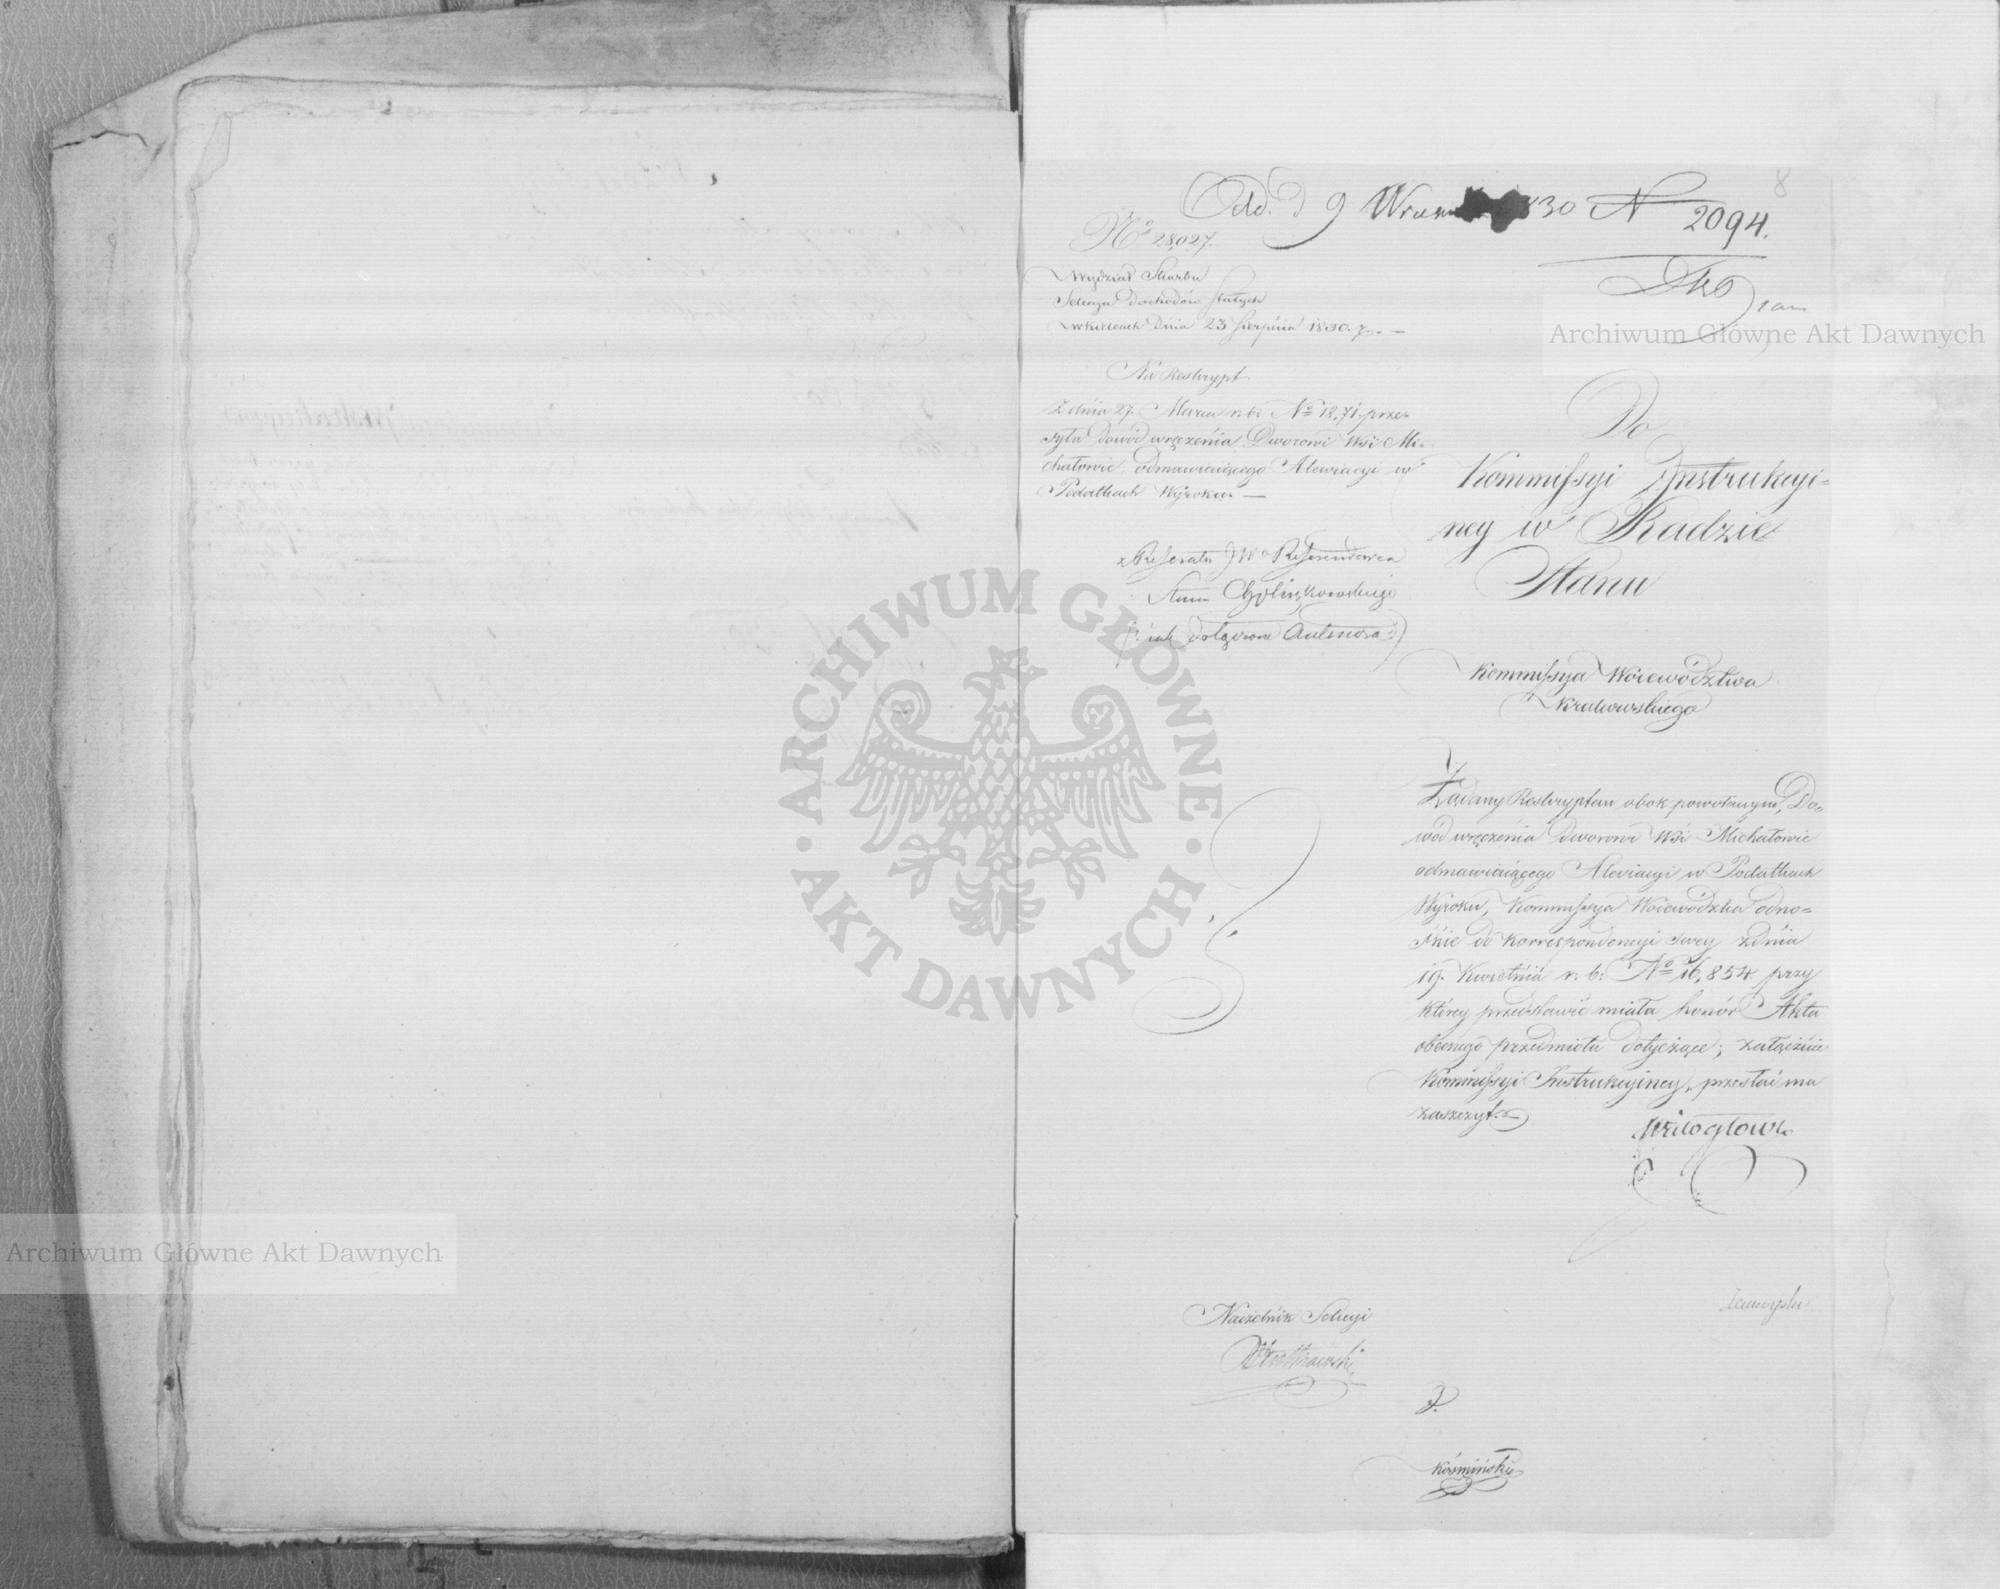 8
Odd. D 9 1830 N 2094.
No 28,027.
Wydział Skarbu
Sekcya Dochodów Stałych
w Kielcach Dnia 23 Sierpnia 1830. r. —
Na Reskrypt
Z dnia 27. Marca r. b: No 18,71. prze-
syła dowód wręczenia Dworowi Wsi Mi-
chałowic, odmawiaiącego Alewiacyi w
Podatkach Wyroku. —
z Referatu JWo Referendarza
Stanu
Do
Kommissyi Instrukcyi-
ney w Radzie
Stanu
Kommissya Woiewództwa
Krakowskiego
Żądany Reskryptem obok powołanym, Do-
wód wręczenia dworowi Wsi Michałowic
odmawiaiącego Alewiacyi w Podatkach
Wyroku, Kommissya Woiewódzka odno-
śnie do korrespondencyi swey z dnia
19. Kwietnia r. b: No 16,854. przy
którey przedstawić miała honór Akta
obecnego przedmiotu dotyczące; załącznie
Kommissyi Instrukcyiney, przesłać ma
zaszczyt.
Wielogłows
Naczelnik Sekcyi
Kosmiński
Archiwum Główne Akt Dawnych
Archiwum Główne Akt Dawnych
ARCHIWUM GŁÓWNE
AKT DAWNYCH